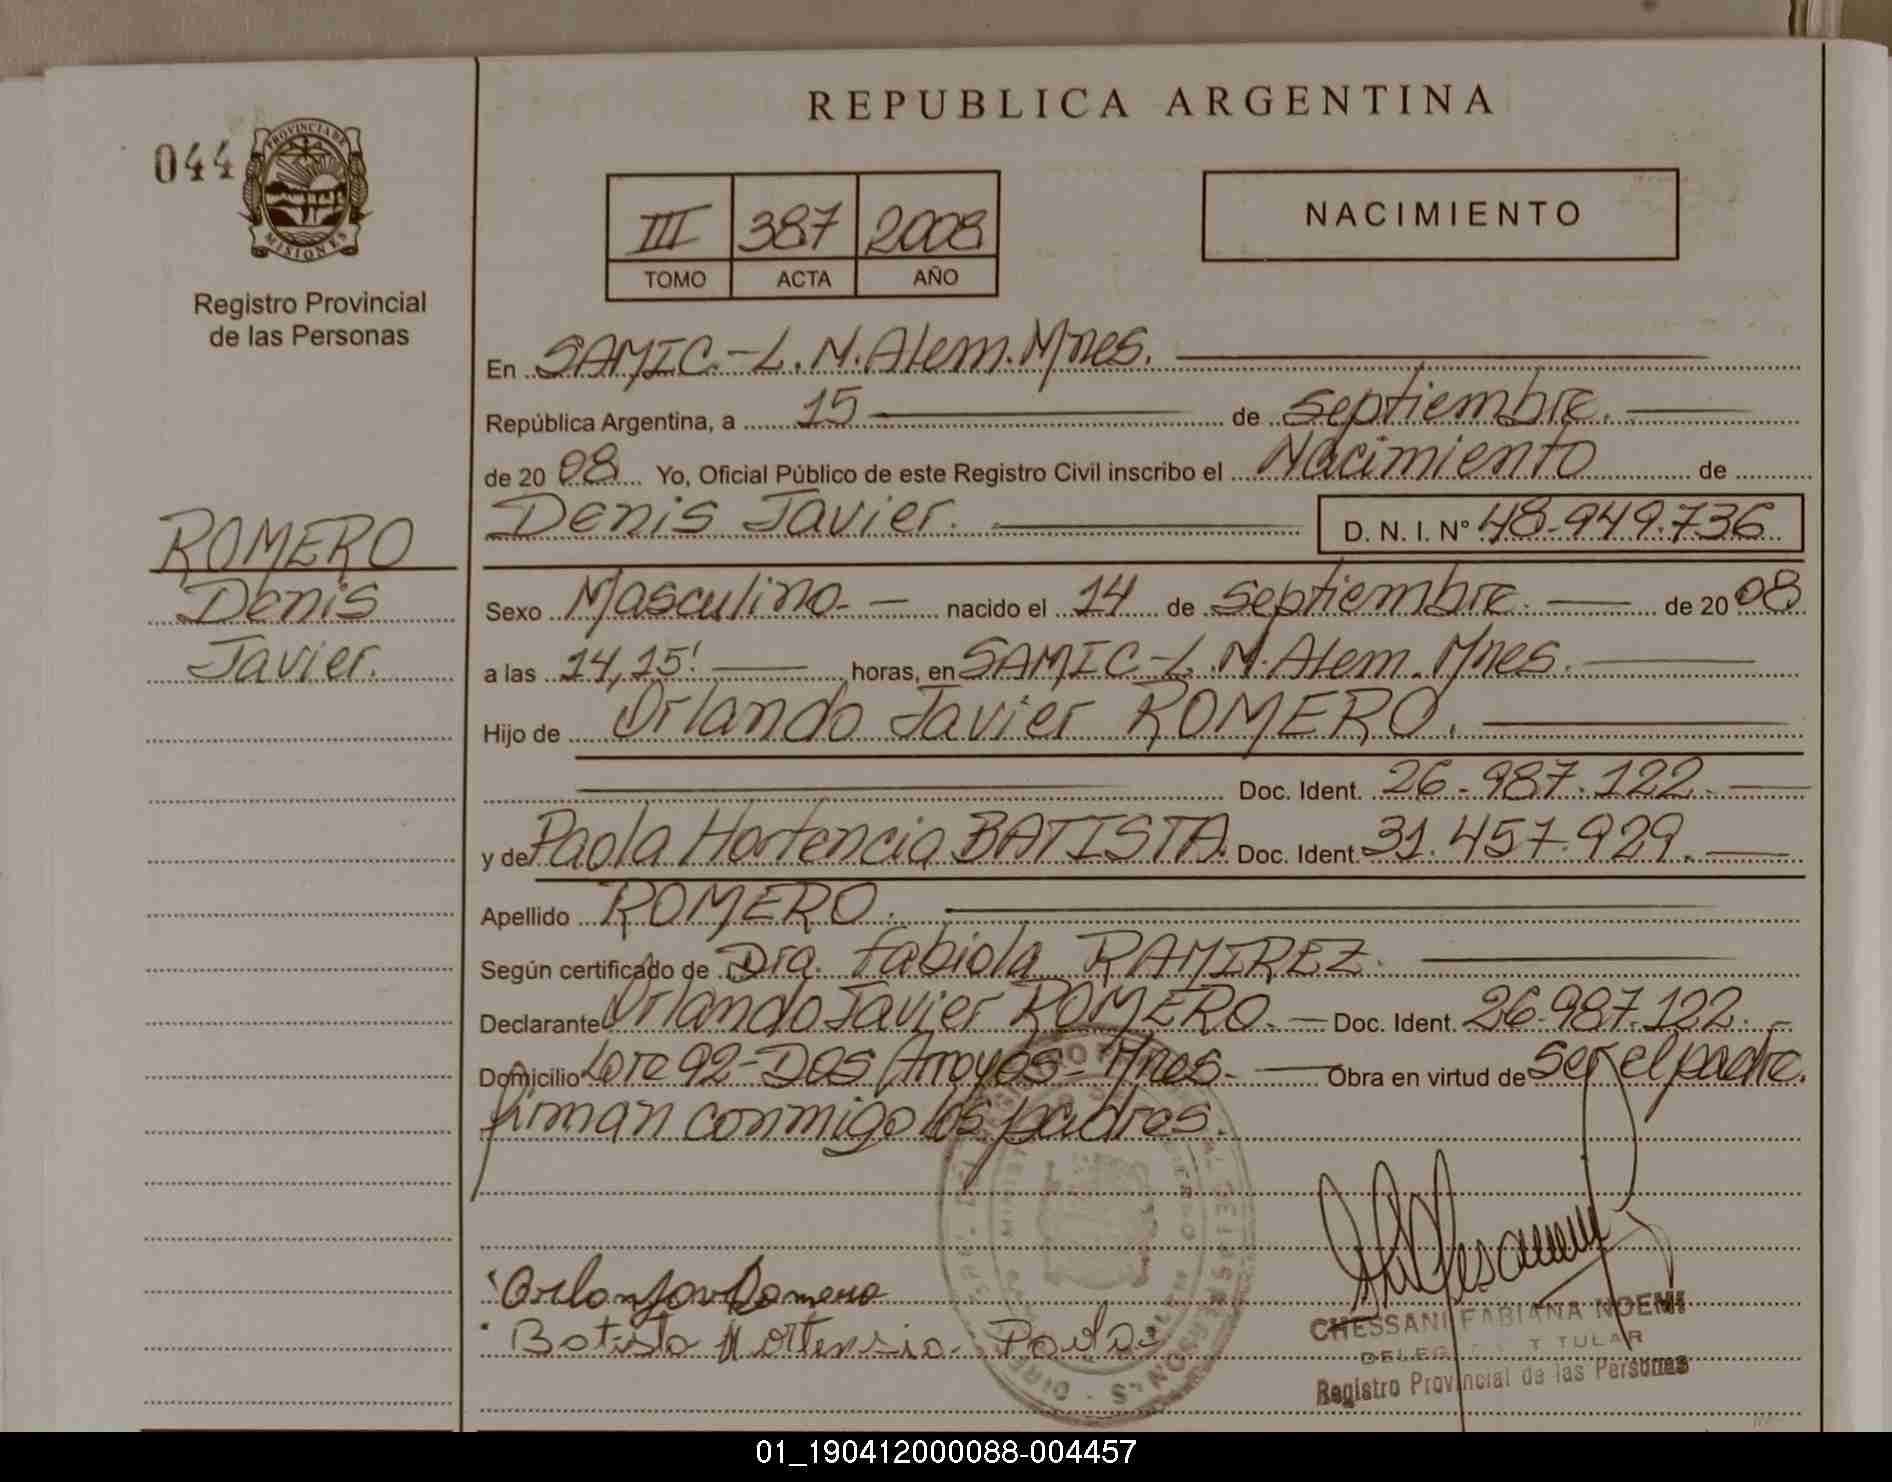 REPUBLICA ARGENTINA
044
PROVINCIA DE
MISIONES
Registro Provincial
de las Personas
III 387 2008
TOMO ACTA AÑO
NACIMIENTO
En SAMIC.-L.N.Alem.Mnes.
República Argentina, a 15 de septiembre.
de 20 08 Yo, Oficial Público de este Registro Civil inscribo el Nacimiento de
Denis Javier. D. N. I. Nº 48-949.736
ROMERO
Denis
Javier.
Sexo Masculino.- nacido el 14 de septiembre. de 20 08
a las 14,15! horas, en SAMIC-L.N.Alem.Mnes.
Hijo de Orlando Javier ROMERO.
Doc. Ident. 26-987.122.
y de Paola Hortencia BATISTA. Doc. Ident. 31.457.929.
Apellido ROMERO.
Según certificado de Dra. Fabiola RAMIREZ.
Declarante Orlando Javier ROMERO.- Doc. Ident. 26.987.122.
Domicilio Lote 92-Dos Arroyos-Mnes- Obra en virtud de ser el padre.
firman conmigo los padres.
Batista Hortensia Paola
CHESSANI FABIANA NOEMI
TITULAR
Registro Provincial de las Personas
01_190412000088-004457